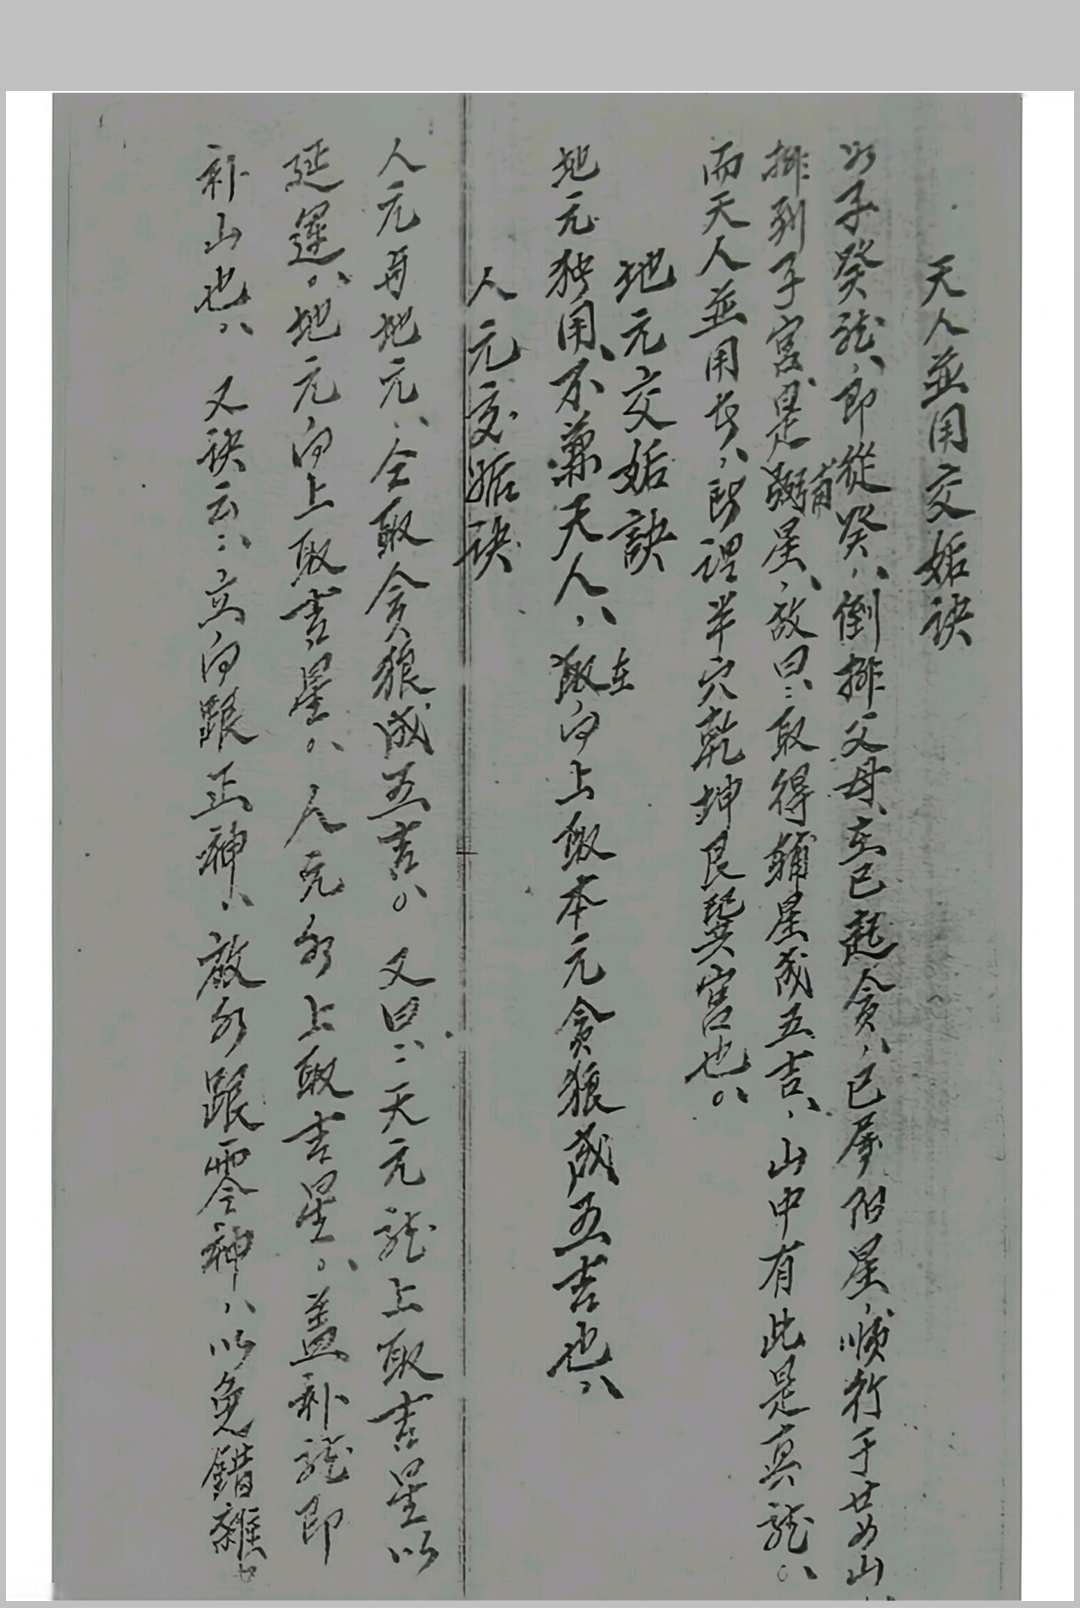 天人並用交姤诀
以子癸龙、即從癸、倒排父母、在巳起貪、巳屬阳星、顺行于廿四山
排到子宮、是弼輔星、故曰、取得輔星成五吉、山中有此是真龙、
而天人並用者、所谓半穴乾坤艮巽宮也、
地元交姤訣
地元独用、不兼天人、在取向上取本元貪狼成五吉也、
人元交姤诀
人元再地元、全取貪狼成五吉、又曰、天元龙上取吉星以
延運、地元向上取吉星、人元水上取吉星、盖补龙即
补山也、又诀云、立向跟正神、放水跟零神、以免錯雜